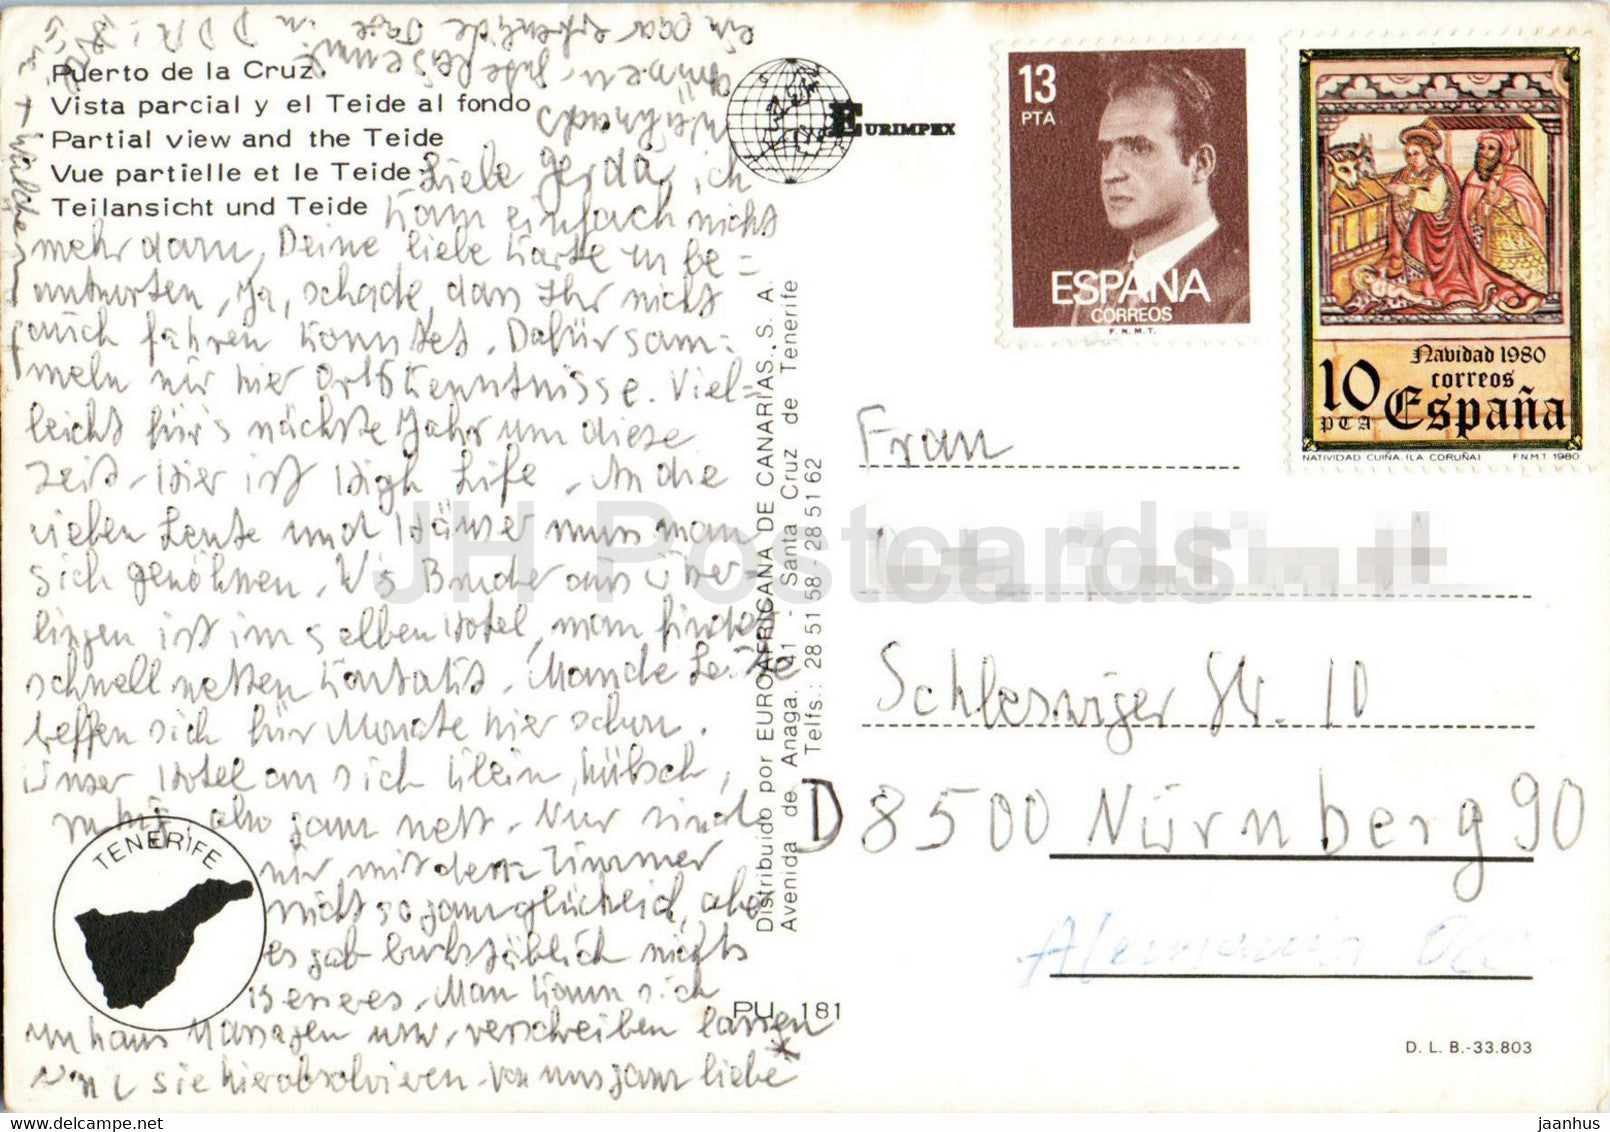 Puerto de la Cruz.
Vista parcial y el Teide al fondo
Partial view and the Teide
Vue partielle et le Teide
Teilansicht und Teide
Liebe Gerda, ich
kann einfach nicht
mehr darn, Deine liebe Karte zu be=
antworten. Ja, schade, dass Ihr nicht
auch fahren konntet. Dafür sam=
meln wir hier Ortskenntnisse. Viel=
leicht für's nächste Jahr um diese
Zeit. Hier ist High Life. An die
vielen Leute und Häuser muss man
sich gewöhnen. W's Bruder aus Über=
lingen ist im selben Hotel, man findet
schnell netten Kontakt. Manche Leute
treffen sich für Monate hier schon.
Unser Hotel an sich klein, hübsch,
ruhig, also ganz nett. Nur sind
wir mit dem Zimmer
nicht so ganz glücklich, aber
es gab buchstäblich nichts
Besseres. Man kann sich
im Haus Massagen usw. verschreiben lassen
und sie hier absolvieren. Von uns ganz liebe
ein paar
in DDR!
TENERIFE
EURIMPEX
Distribuido por EUROAFRICANA DE CANARIAS, S. A.
Avenida de Anaga, 41 - Santa Cruz de Tenerife
Telfs.: 28 51 58 - 28 51 62
PU. 181
13
PTA
ESPAÑA
CORREOS
F.N.M.T.
Navidad 1980
correos
10 España
PTA
NATIVIDAD CUIÑA. (LA CORUÑA) F N M T 1980
Frau
Schleswiger Str. 10
D 8500 Nürnberg 90
Alemania Occ
D. L. B.-33.803
JH Postcards
jaanhus
www.delcampe.net